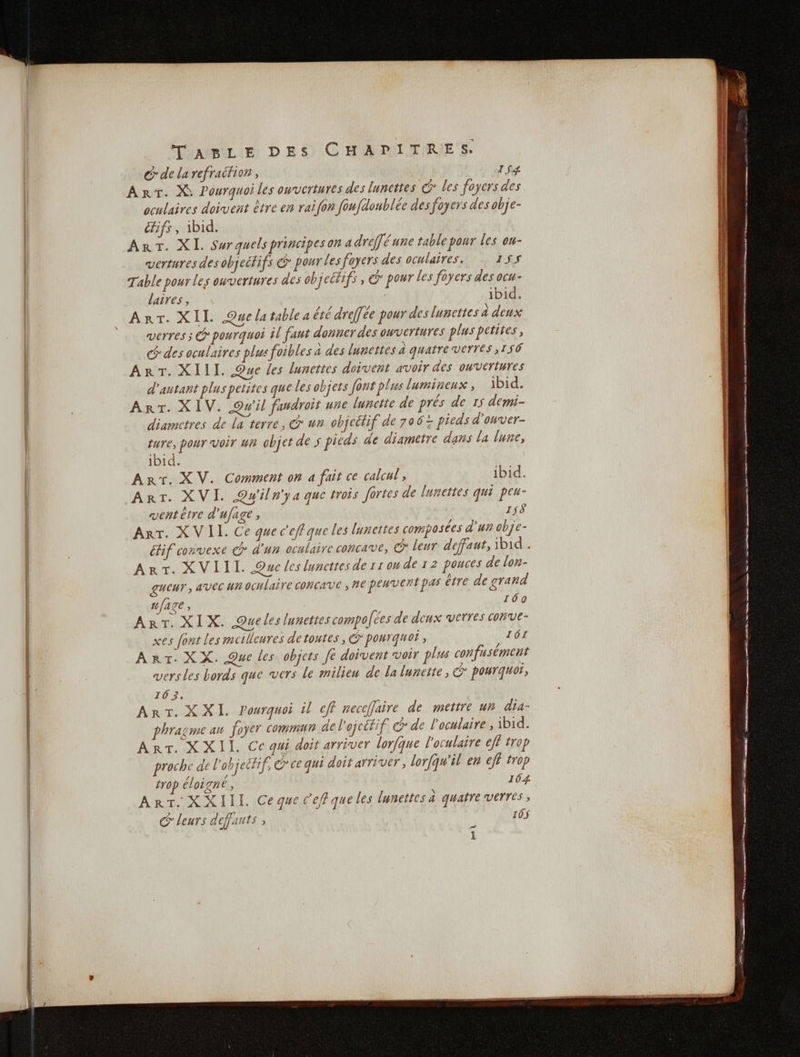 TABLE DES CHAPITRES.
& de la refraction, 154
ART. X. Pourquoi les ouvertures des lunettes & les foyers des
oculaires doivent être en raison sousdoublée des foyers des obje-
ctifs, ibid.
ART. XI. Sur quels principes on a dressé une table pour les ou-
vertures des objectifs & pour les foyers des oculaires. 155
Table pour les ouvertures des objectifs, & pour les foyers des ocu-
laires, ibid.
ART. XII. Que la table a été dressée pour des lunettes à deux
verres ; & pourquoi il faut donner des ouvertures plus petites,
& des oculaires plus foibles à des lunettes à quatre verres, 156
ART. XIII. Que les lunettes doivent avoir des ouvertures
d'autant plus petites que les objets sont plus lumineux, ibid.
ART. XIV. Qu'il faudroit une lunette de prés de 15 demi-
diametres de la terre, & un objectif de 706½ pieds d'ouver-
ture, pour voir un objet de 5 pieds de diametre dans la lune,
ibid.
ART. XV. Comment on a fait ce calcul, ibid.
ART. XVI. Qu'il n'y a que trois sortes de lunettes qui peu-
vent être d'usage, 158
ART. XVII. Ce que c'est que les lunettes composées d'un obje-
ctif convexe & d'un oculaire concave, & leur deffaut, ibid.
ART. XVIII. Que les lunettes de 11 ou de 12 pouces de lon-
gueur, avec un oculaire concave, ne peuvent pas être de grand
usage, 160
ART. XIX. Que les lunettes composées de deux verres conve-
xes sont les meilleures de toutes, & pourquoi, 161
ART. XX. Que les objets se doivent voir plus confusément
vers les bords que vers le milieu de la lunette, & pourquoi,
163.
ART. XXI. Pourquoi il est necessaire de mettre un dia-
phragme au foyer commun de l'ojectif & de l'oculaire, ibid.
ART. XXII. Ce qui doit arriver lorsque l'oculaire est trop
proche de l'objectif, & ce qui doit arriver, lorsqu'il en est trop
trop éloigné, 164
ART. XXIII. Ce que c'est que les lunettes à quatre verres,
& leurs deffauts, 165
ĩ